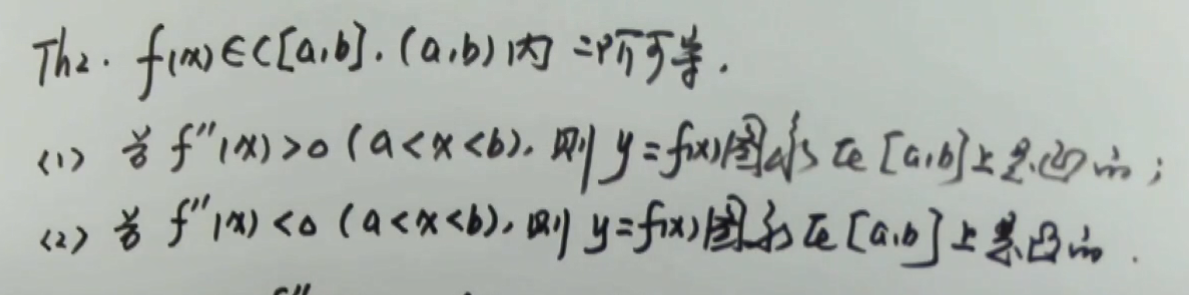 Th2. f(x)∈C[a,b]. (a,b)内二阶可导.
<1> 若f″(x)>0 (a<x<b), 则y=f(x)图形在[a,b]上是凹的;
<2> 若f″(x)<0 (a<x<b), 则y=f(x)图形在[a,b]上是凸的.